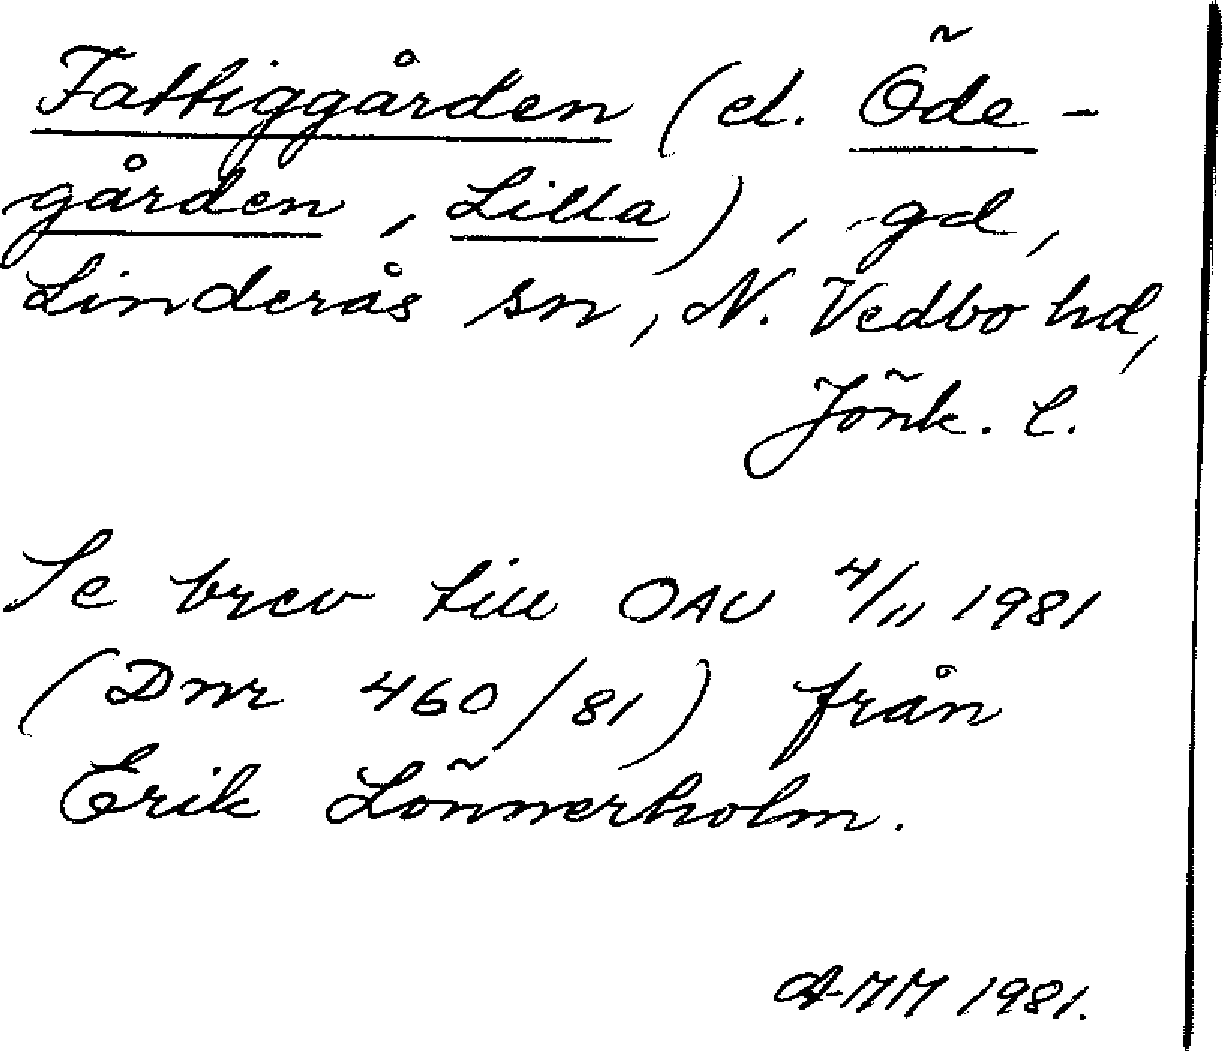 Fattiggården (el. Öde-
gården, Lilla), gd,
Linderås sn, N. Vedbo hd,
Jönk. l.
Se brev till OAU 4/11 1981
(Dnr 460/81) från
Erik Lönnerholm.
AMM 1981.